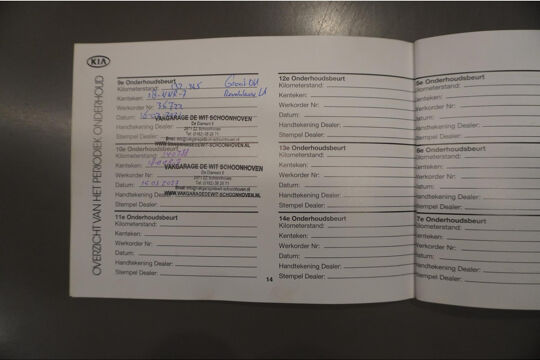 KIA
OVERZICHT VAN HET PERIODIEK ONDERHOUD
9e Onderhoudsbeurt
Kilometerstand:
Kenteken:
Werkorder Nr:
Datum:
Handtekening Dealer:
Stempel Dealer:
VAKGARAGE DE WIT SCHOONHOVEN
WWW.VAKGARAGEDEWIT-SCHOONHOVEN.NL
10e Onderhoudsbeurt
Kilometerstand:
Kenteken:
Werkorder Nr:
Datum:
Handtekening Dealer:
Stempel Dealer:
VAKGARAGE DE WIT SCHOONHOVEN
WWW.VAKGARAGEDEWIT-SCHOONHOVEN.NL
11e Onderhoudsbeurt
Kilometerstand:
Kenteken:
Werkorder Nr:
Datum:
Handtekening Dealer:
Stempel Dealer:
12e Onderhoudsbeurt
Kilometerstand:
Kenteken:
Werkorder Nr:
Datum:
Handtekening Dealer:
Stempel Dealer:
13e Onderhoudsbeurt
Kilometerstand:
Kenteken:
Werkorder Nr:
Datum:
Handtekening Dealer:
Stempel Dealer:
14e Onderhoudsbeurt
Kilometerstand:
Kenteken:
Werkorder Nr:
Datum:
Handtekening Dealer:
Stempel Dealer:
14
5e Onderhoudsbeurt
Kilometerstand:
Kenteken:
Werkorder Nr:
Datum:
Handtekening Dealer:
Stempel Dealer:
6e Onderhoudsbeurt
Kilometerstand:
Kenteken:
Werkorder Nr:
Datum:
Handtekening Dealer:
Stempel Dealer:
7e Onderhoudsbeurt
Kilometerstand:
Kenteken:
Werkorder Nr:
Datum:
Handtekening Dealer:
Stempel Dealer: